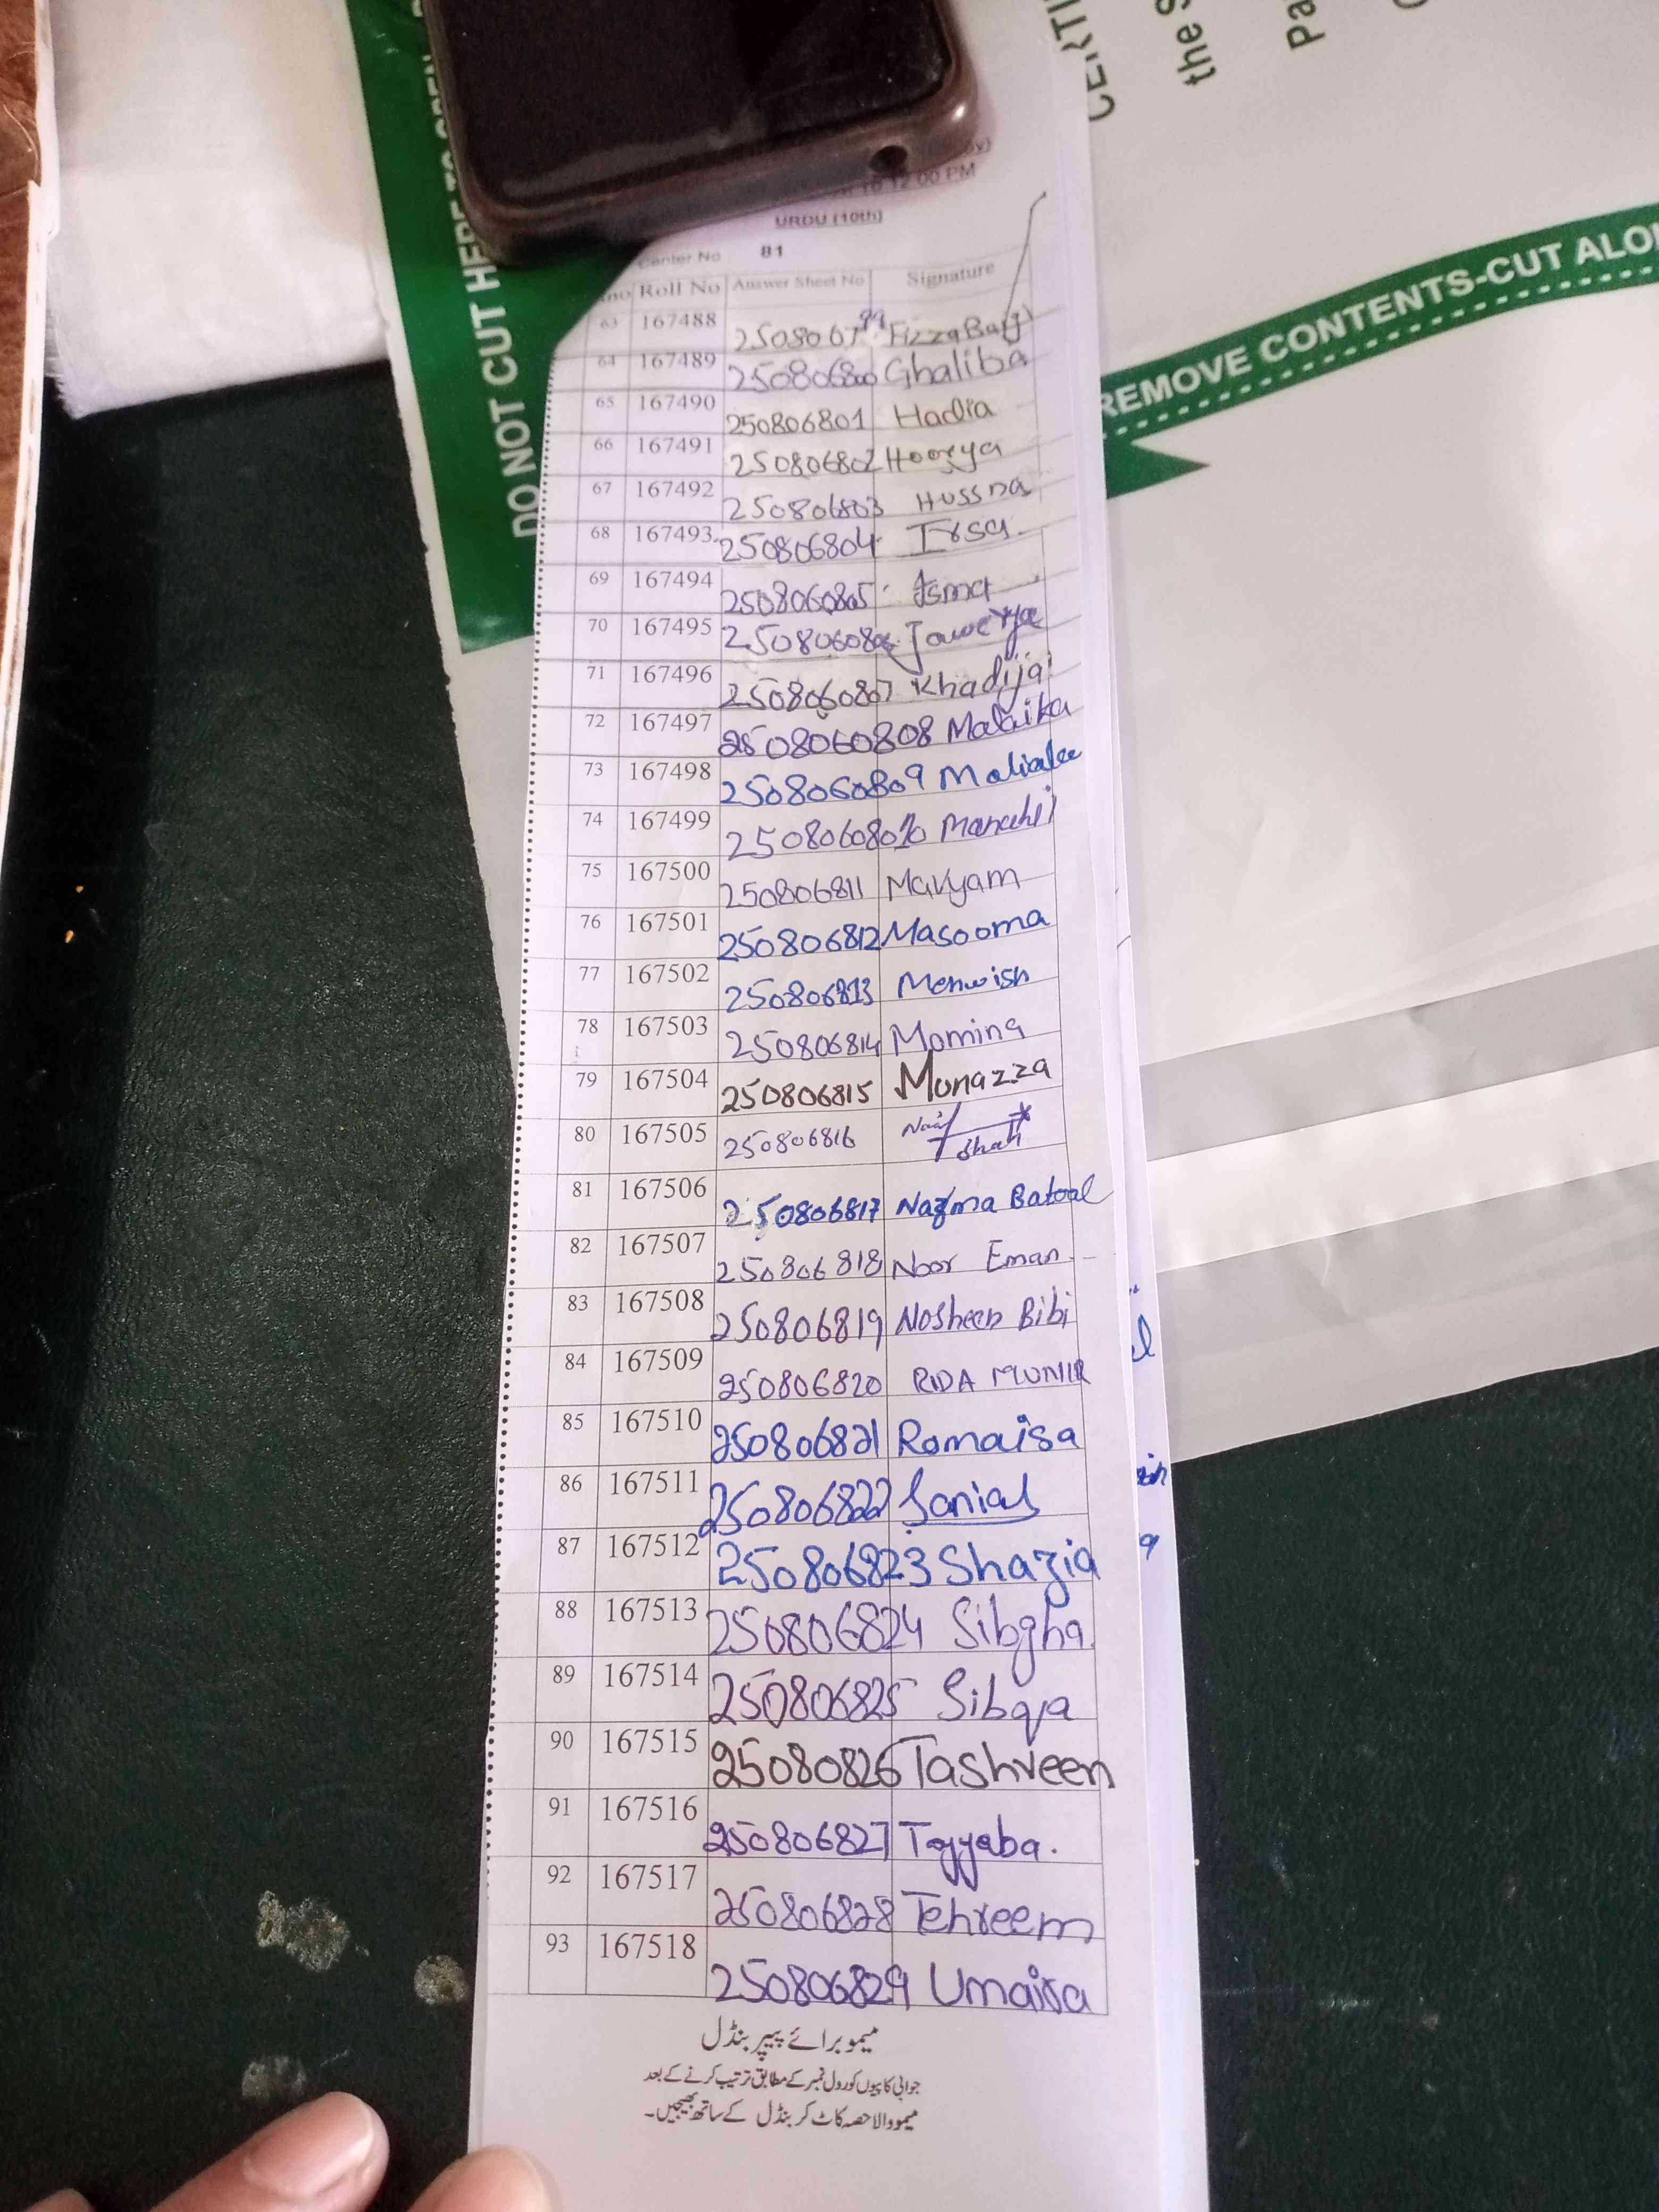 DO NOT CUT HERE TO OPEN
the S
Pa
REMOVE CONTENTS-CUT ALO
12:00 PM
URDU (10th)
Center No 81
Roll No Answer Sheet No Signature
63 167488 250806799 Fizza
64 167489 250806800 Ghaliba
65 167490 250806801 Hadia
66 167491 250806802 Hoorya
67 167492 250806803 Hussna
68 167493 250806804 Irsa
69 167494 2508060805 Isma
70 167495 2508060806 Jawerya
71 167496 2508060807 Khadija
72 167497 2508060808 Malaika
73 167498 2508060809
74 167499 Manahil
75 167500 250806811 Maryam
76 167501 250806812 Masooma
77 167502 250806813 Mehwish
78 167503 250806814 Momina
79 167504 250806815 Munazza
80 167505 250806816 Shah
81 167506 250806817 Nagma Batool
82 167507 250806818 Noor Eman
83 167508 250806819 Nosheen Bibi
84 167509 250806820 RIDA MUNIR
85 167510 250806821 Romaisa
86 167511 250806822 Sania
87 167512 250806823 Shazia
88 167513 250806824 Sibgha
89 167514 250806825 Sibqa
90 167515 25080826 Tashreen
91 167516 250806827 Tayyaba.
92 167517 250806828 Tehreem
93 167518 250806829 Umaira
میمو برائے پیپر بنڈل
جوابی کاپیوں کو رول نمبر کے مطابق ترتیب کرنے کے بعد
میمو والا حصہ کاٹ کر بنڈل کے ساتھ بھیجیں۔